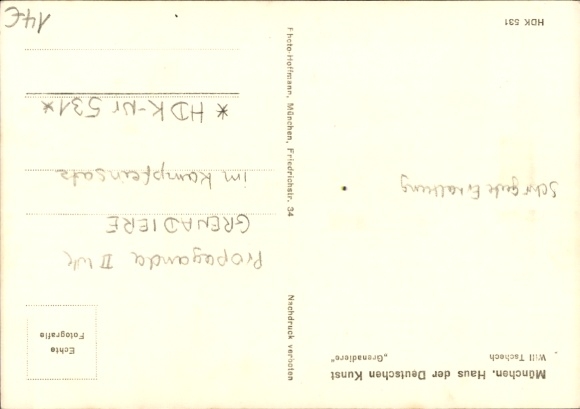 München, Haus der Deutschen Kunst
Will Tschech „Grenadiere"
Sehr gute Erhaltung
HDK 531
Nachdruck verboten
Photo-Hoffmann, München, Friedrichstr. 34
Echte
Fotografie
Propaganda II WK
GRENADIERE
im Kampfeinsatz
* HDK-Nr 531*
14€